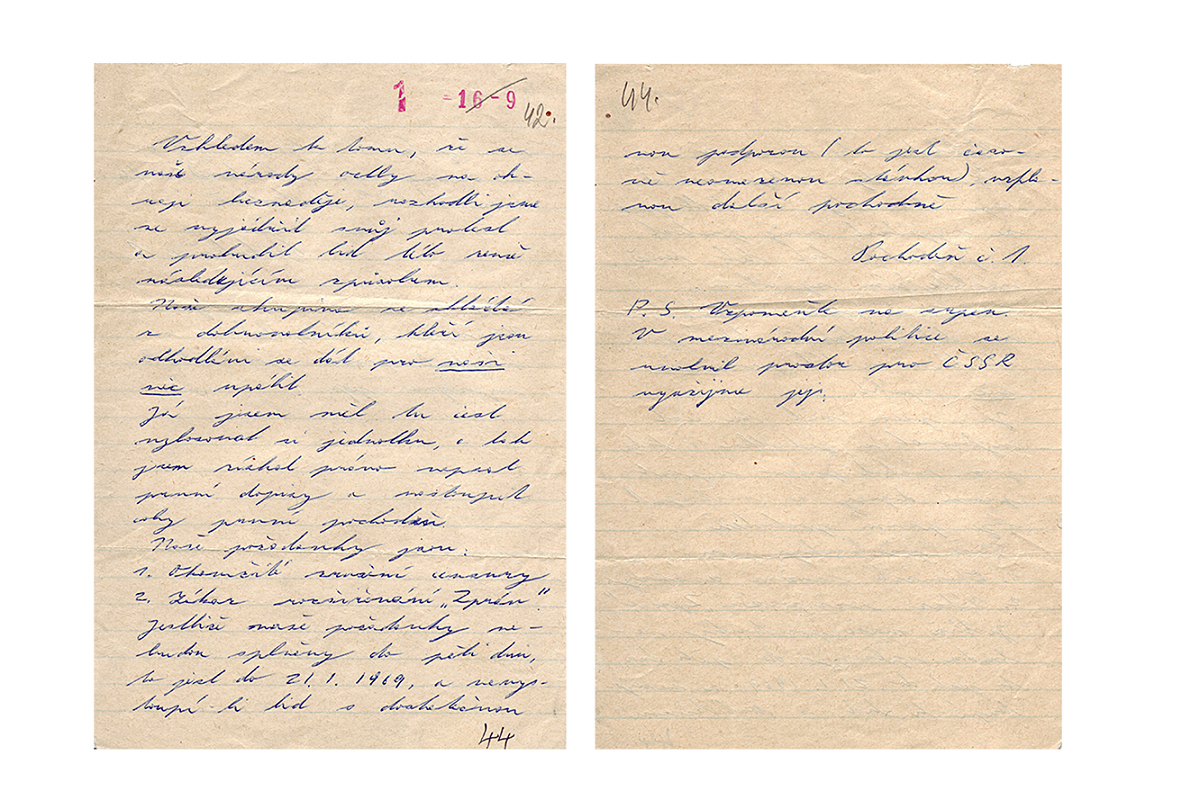 1 -16-9
42.
Vzhledem k tomu, že se
naše národy octly na ok-
raji beznaděje, rozhodli jsme
se vyjádřit svůj protest
a probudit lid této země
následujícím způsobem.
Naše skupina se skládá
z dobrovolníků, kteří jsou
odhodláni se dát pro naši
věc upálit.
Já jsem měl tu čest
vylosovat si jedničku, a tak
jsem získal právo napsat
první dopisy a nastoupit
coby první pochodeň.
Naše požadavky jsou:
1. Okamžité zrušení cenzury
2. Zákaz rozšiřování „Zpráv".
Jestliže naše požadavky ne-
budou splněny do pěti dnů,
to jest do 21. 1. 1969, a nevys-
toupí-li lid s dostatečnou
44
44.
nou podporou (to jest časo-
vě neomezenou stávkou), vzpla-
nou další pochodně
Pochodeň č. 1.
P. S. Vzpomeňte na srpen.
V mezinárodní politice se
uvolnil prostor pro ČSSR
využijme jej.